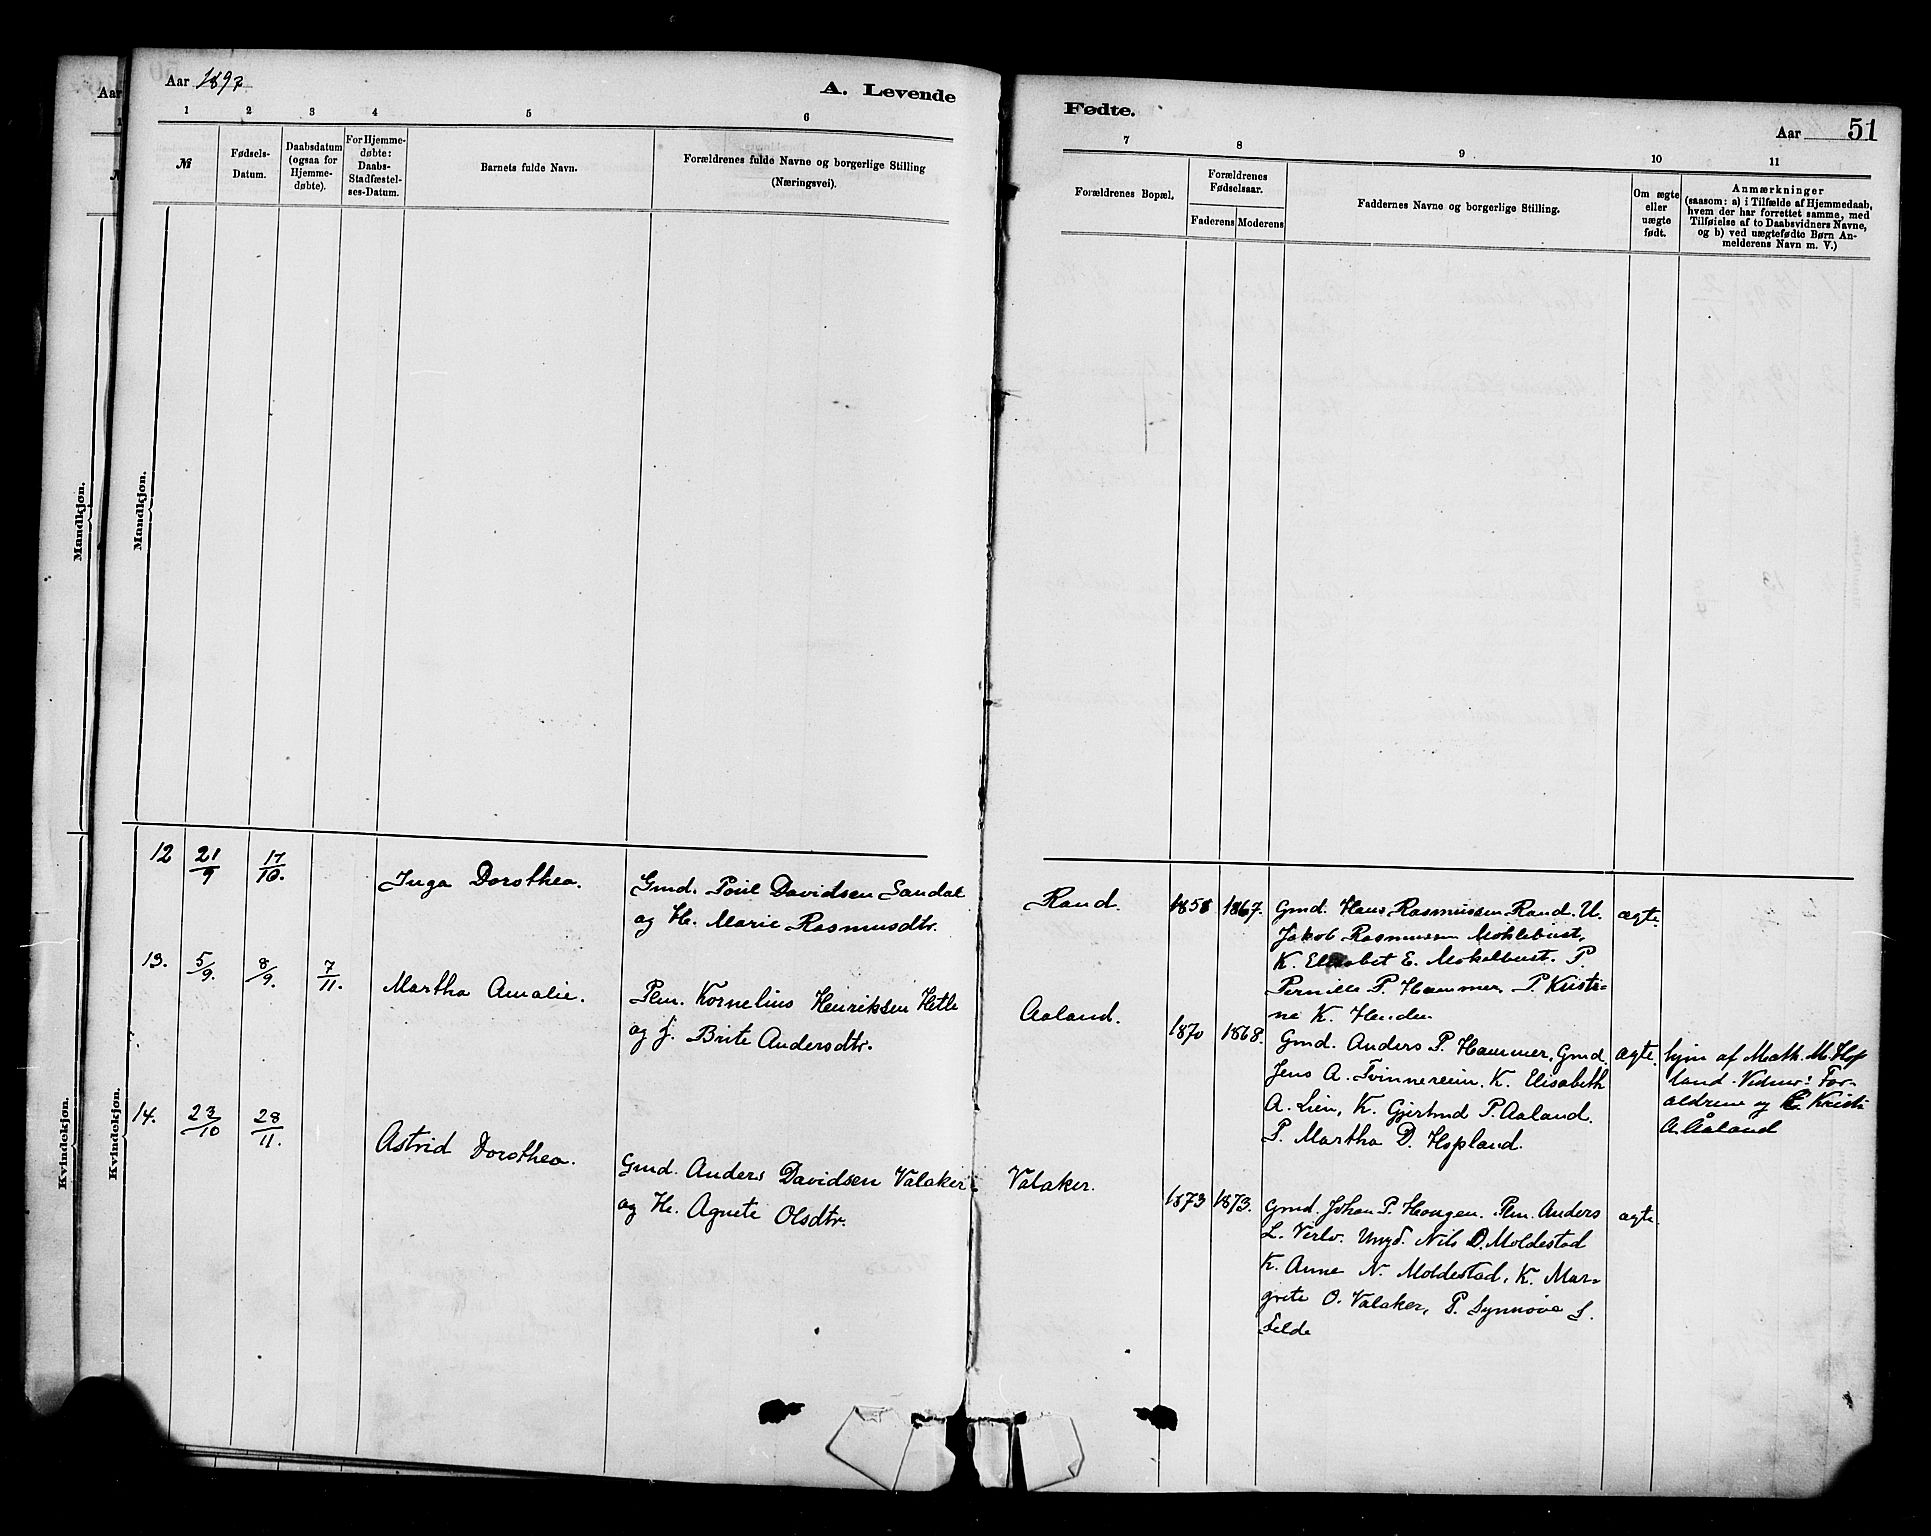 Aar 1897
A. Levende
Fødte.
Aar 51
1 2 3 4 5 6
7 8 9 10 11
№
Fødsels-Datum.
Daabsdatum (ogsaa for Hjemme-døbte).
For Hjemme-døbte: Daabs-Stadfæstel-ses-Datum.
Barnets fulde Navn.
Forældrenes fulde Navne og borgerlige Stilling
(Næringsvei).
Forældrenes Bopæl.
Forældrenes Fødselsaar.
Faderens Moderens
Faddernes Navne og borgerlige Stilling.
Om ægte eller uægte født.
Anmærkninger
(saasom: a) i Tilfælde af Hjemmedaab,
hvem der har forrettet samme, med
Tilføielse af to Daabsvidners Navne,
og b) ved uægtefødte Børn An-
melderens Navn m. V.)
Aar
Mandkjøn.
Mandkjøn.
Kvindekjøn.
Kvindekjøn.
12 21/9 17/10. Inga Dorothea.
Gmd. Poul Davidsen Sandal
og H. Marie Rasmusdtr.
Rand. 1867.
Gmd. Hans Rasmussen Rand. U.
Jakob Rasmussen Moklebust,
K. Elisabet E. Mokelbust. P.
Pernille P. Hammer, P. Kristi-
ne K. Henden
ægte.
13. 5/9. 8/9. 7/11. Martha Amalie.
Plm. Kornelius Henriksen Hetle
og J. Brite Andersdtr.
Aaland. 1870 1868.
Gmd. Anders P. Hammer, Gmd.
Jens A. Tvinnereim, K. Elisabeth
A. Lien, K. Gjertrud P. Aaland.
P. Martha D. Hopland.
ægte.
hjm af Math. M. Hop
land. Vidner: For-
ældrene og Kristi
A. Åaland
14. 23/10 28/11. Astrid Dorothea.
Gmd. Anders Davidsen Valaker
og H. Agnete Olsdtr.
Valaker. 1873 1873.
Gmd. Johan P. Hougen. Plm. Anders
L. Verlo. Ungd. Nils D. Moldestad
K. Anne N. Moldestad, K. Mar-
grete O. Valaker, P. Synnøve S.
Selde
ægte.